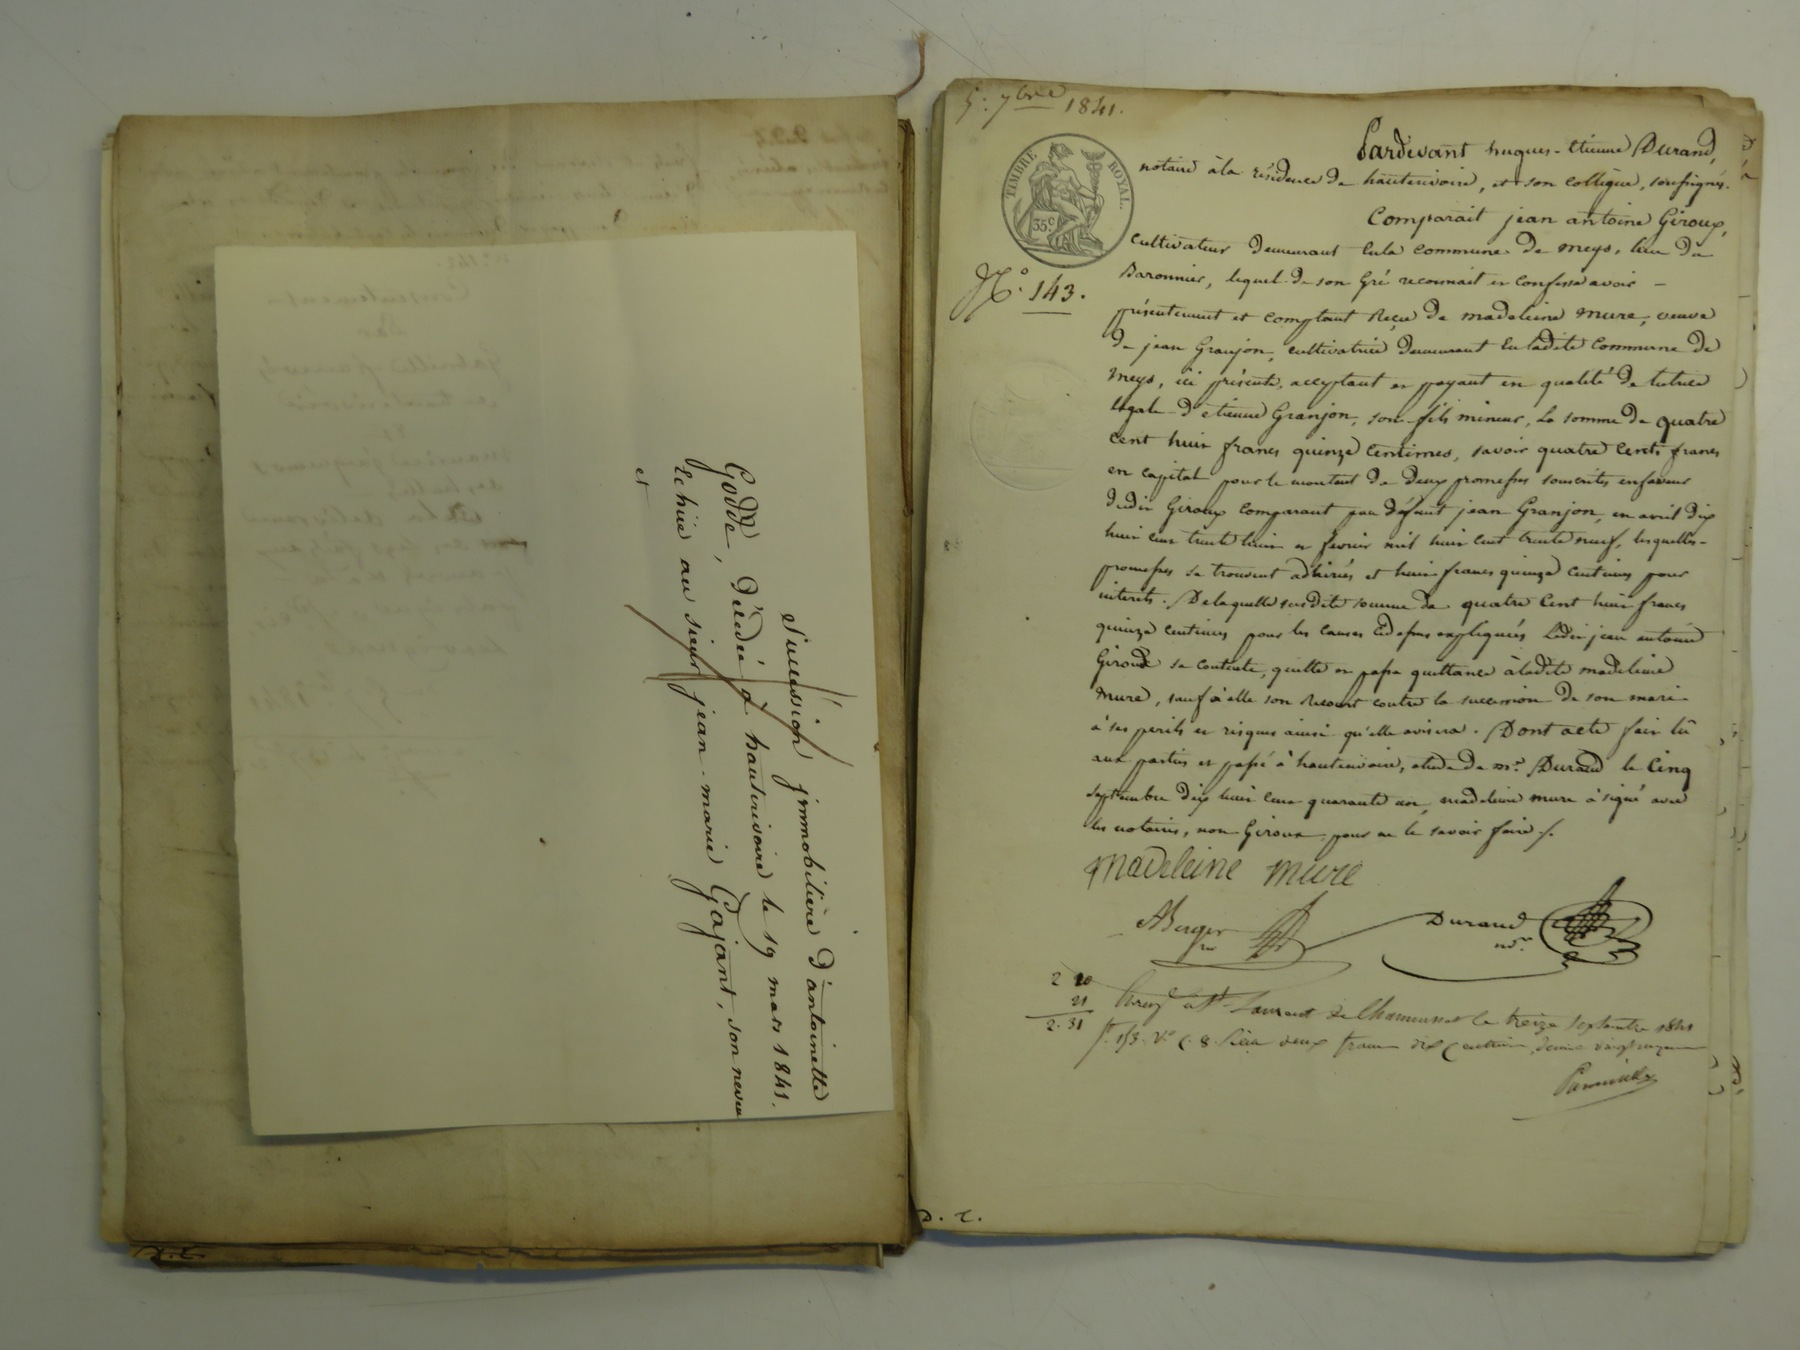 Succession immobilière d'antoinette
Godde, décédée à hauterivoire le 19 mars 1841.
Echue au sieur jean-marie Gajant, son neveu
et
5: 7bre 1841.
TIMBRE ROYAL.
35c
N.o 143.
Pardevant hugues-etienne Durand,
notaire à la résidence de hauterivoire, et son collègue, soussignés.
Comparait jean antoine Giroux,
cultivateur demeurant en la commune de meys, lieu du
Baronnier, lequel de son gré reconnait et confesse avoir -
présentement et comptant reçu de madeleine mure, veuve
de jean Granjon, cultivatrice demeurant en ladite commune de
meys, ici présente, acceptant et payant en qualité de tutrice
légale d'etienne Granjon, son fils mineur, la somme de quatre
cent huit francs quinze centimes, savoir quatre cents francs
en capital pour le montant de deux promesses souscrites en faveur
dudit Giroux comparant par défunt jean Granjon, en avril dix
huit cent trente huit et février mil huit cent trente neuf, lesquelles-
promesses se trouvent adhirées et huit francs quinze centimes pour
interets. De laquelle susdite somme de quatre cent huit francs
quinze centimes pour les causes cidessus expliquées ledit jean antoine
Giroux se contente, quitte et passe quittance à ladite madeleine
mure, sauf à elle son recours contre la succession de son mari
à ses perils et risques ainsi qu'elle avisera. Dont acte fait lû
aux parties et passé à hauterivoire, étude de me. Durand le cinq
septembre dix huit cent quarante un, madeleine mure a signé avec
les notaires, non Giroux pour ne le savoir faire /.
madeleine mure
ABerger
Durand
nre
2 10
21
2.31
Enreg. à St Laurent de Chamousset le treize septembre 1841
f° 153 V° C. 8. Reçu deux francs dix centimes, décime vingt un
D. E.
D. E.